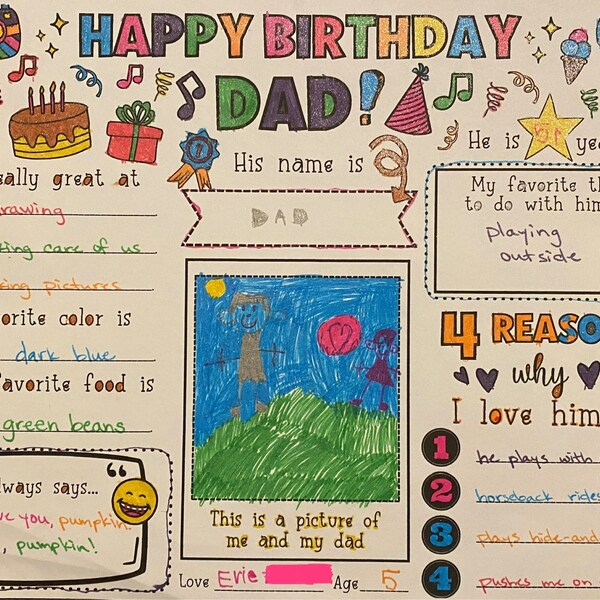 HAPPY BIRTHDAY
DAD!
1
His name is
DAD
He is 91 yea
eally great at
rawing
king care of us
king pictures
orite color is
dark blue
favorite food is
green beans
lways says...
ve you, pumpkin
, pumpkin!
This is a picture of
me and my dad
Love Evie Age 5
My favorite th
to do with him
playing
outside
4 REASO
why
I love him
1 he plays with
2 horseback rides
3 plays hide-and
4 pushes me on